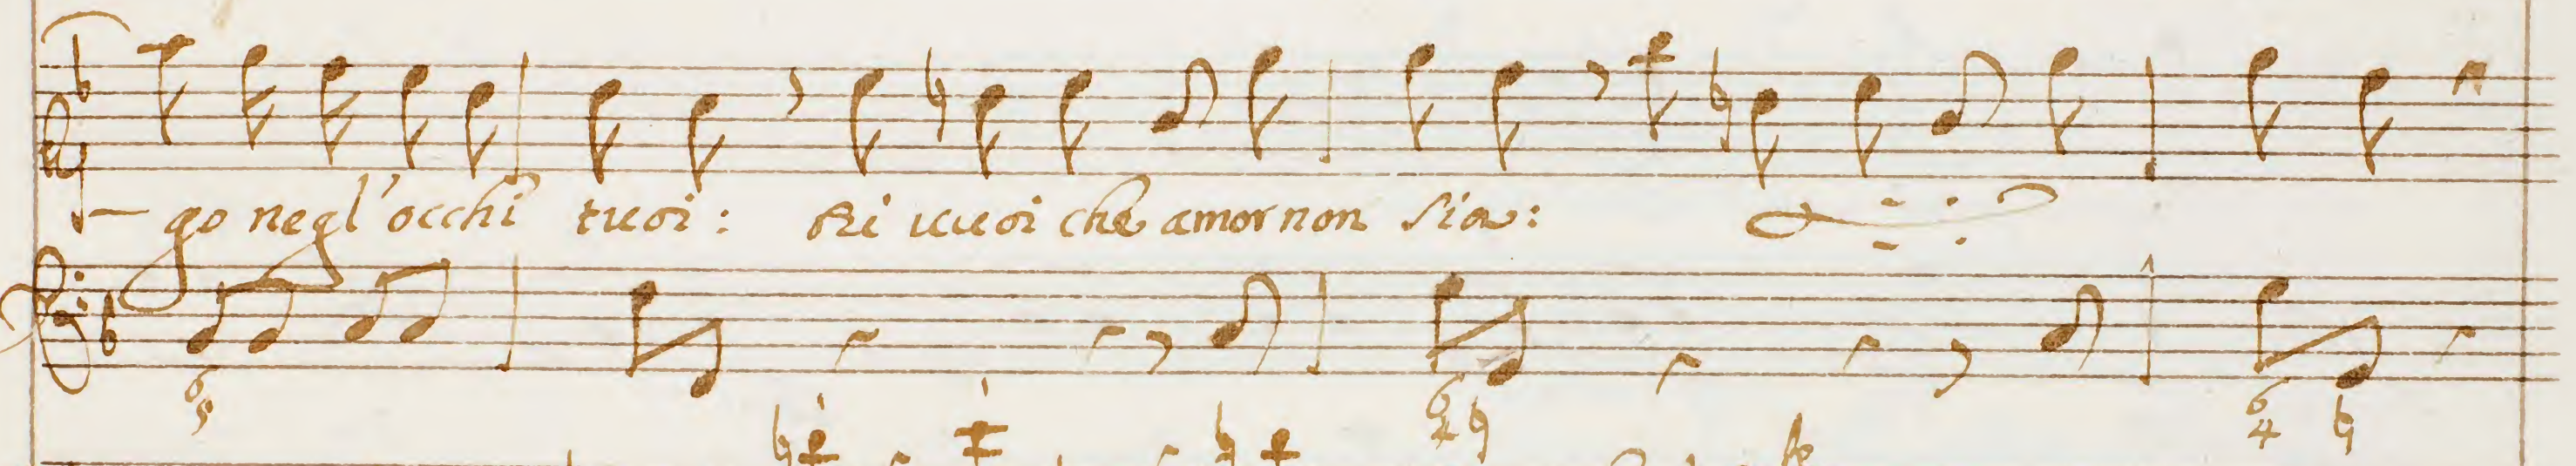 - go negl'occhi tuoi: Di vuoi che amor non sia:
6
5
6
4
6
4